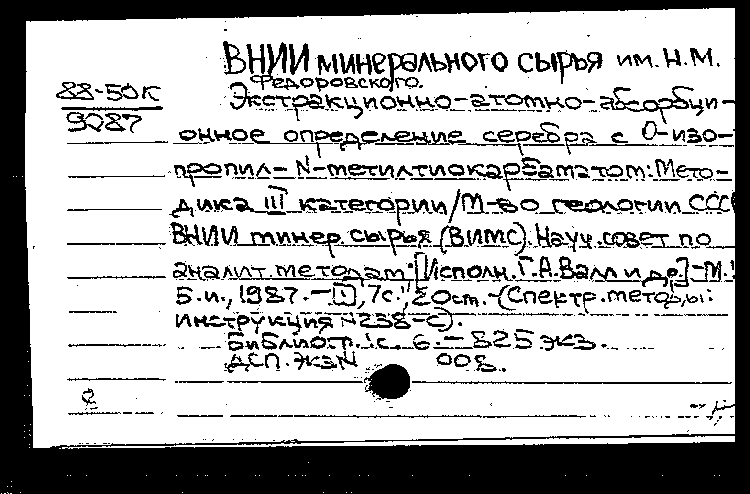 ВНИИ минерального сырья им. Н.М.
Федоровского.
88-50К
9087
Экстракционно-атомно-абсорбци-
онное определение серебра с О-изо-
пропил-N-метилтиокарбаматом: Мето-
дика III категории/М-во геологии СССР
ВНИИ минер. сырья (ВИМС). Науч. совет по
аналит. методам; [Исполн. Г.А. Валл и др.]-М.:
Б.и., 1987.-[1], 7с.; 20см.-(Спектр. методы:
инструкция N238-С).
Библиогр.: с. 6. - 825 экз.
ДСП. экз N 008.